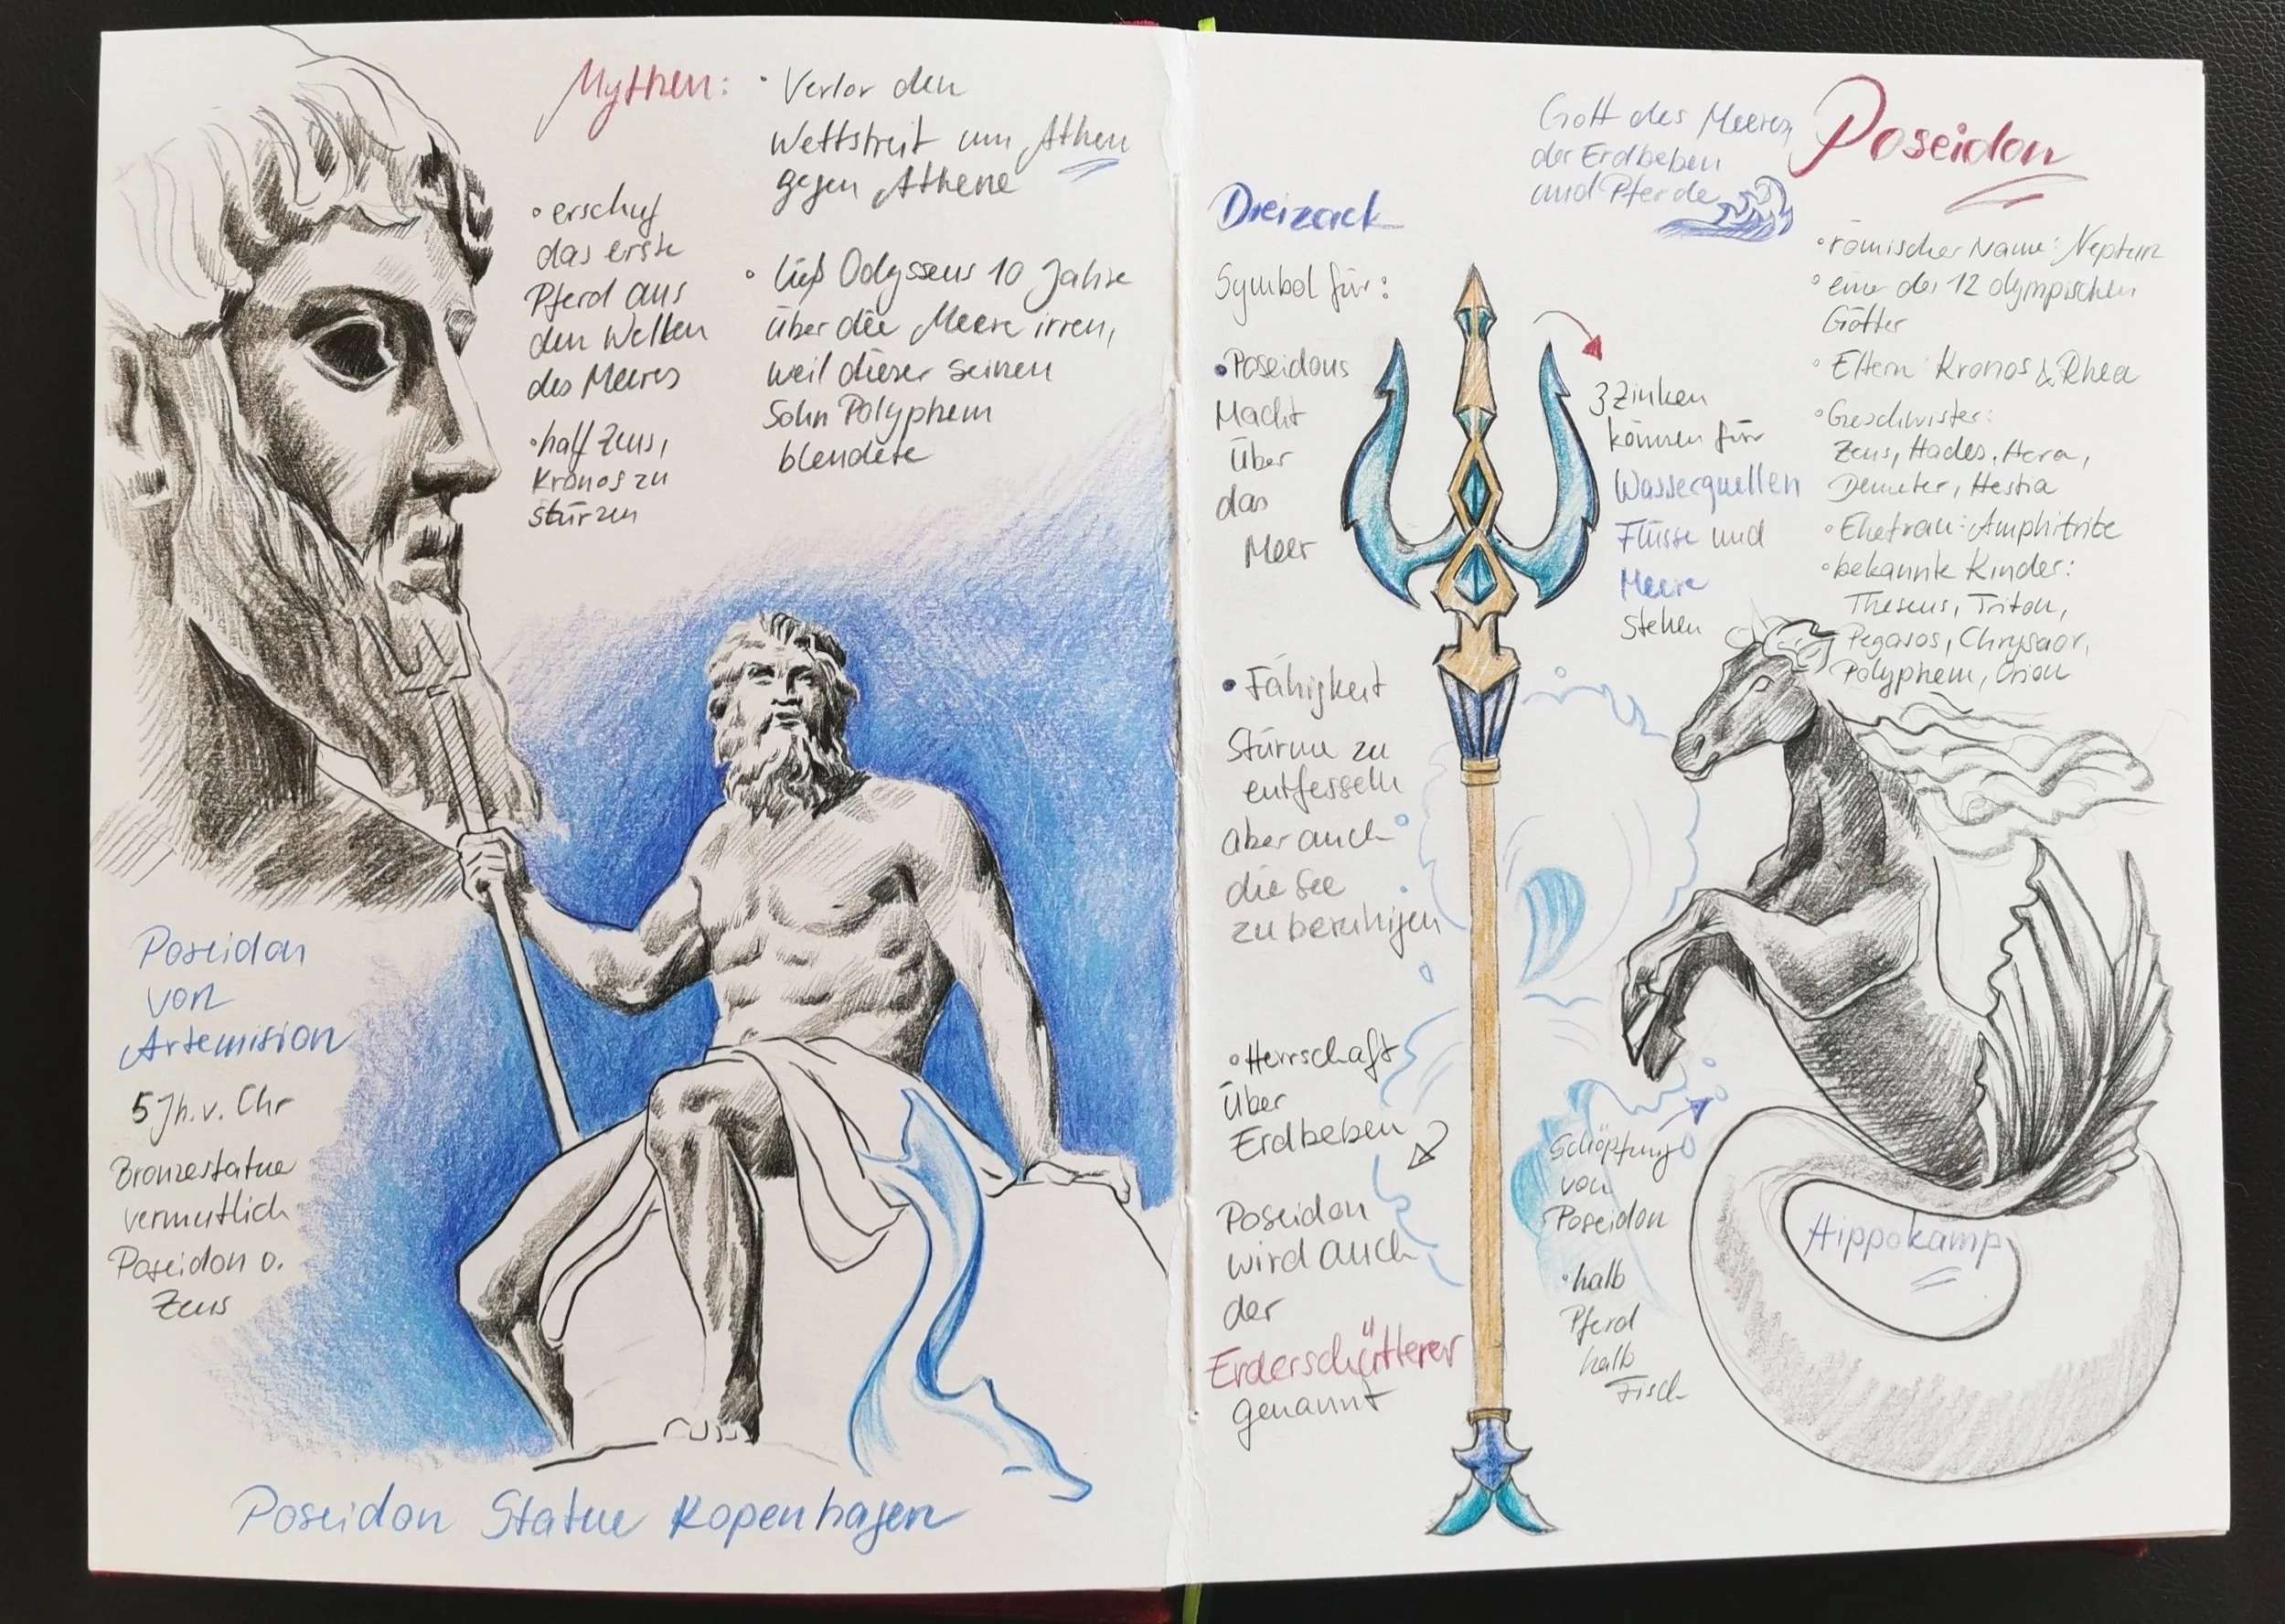 Mythen:
• Verlor den
Wettstreit um Athen
gegen Athene
• erschuf
das erste
Pferd aus
den Wellen
des Meeres
• half Zeus,
Kronos zu
stürzen
• ließ Odysseus 10 Jahre
über die Meere irren,
weil dieser seinen
Sohn Polyphem
blendete
Poseidon
von
Artemision
5 Jh. v. Chr
Bronzestatue
vermutlich
Poseidon o.
Zeus
Poseidon Statue Kopenhagen
Poseidon
Gott des Meeres,
der Erdbeben
und Pferde
Dreizack
Symbol für:
• Poseidons
Macht
über
das
Meer
• Fähigkeit
Stürme zu
entfesseln
aber auch
die See
zu beruhigen
• Herrschaft
über
Erdbeben
Poseidon
wird auch
der
Erderschütterer
genannt
3 Zinken
können für
Wasserquellen
Flüsse und
Meere
stehen
• römischer Name: Neptun
• einer der 12 olympischen
Götter
• Eltern Kronos & Rhea
• Geschwister:
Zeus, Hades, Hera,
Demeter, Hestia
• Ehefrau: Amphitrite
• bekannte Kinder:
Theseus, Triton,
Pegasos, Chrysaor,
Polyphem, Orion
Schöpfung
von
Poseidon
• halb
Pferd
halb
Fisch
Hippokamp